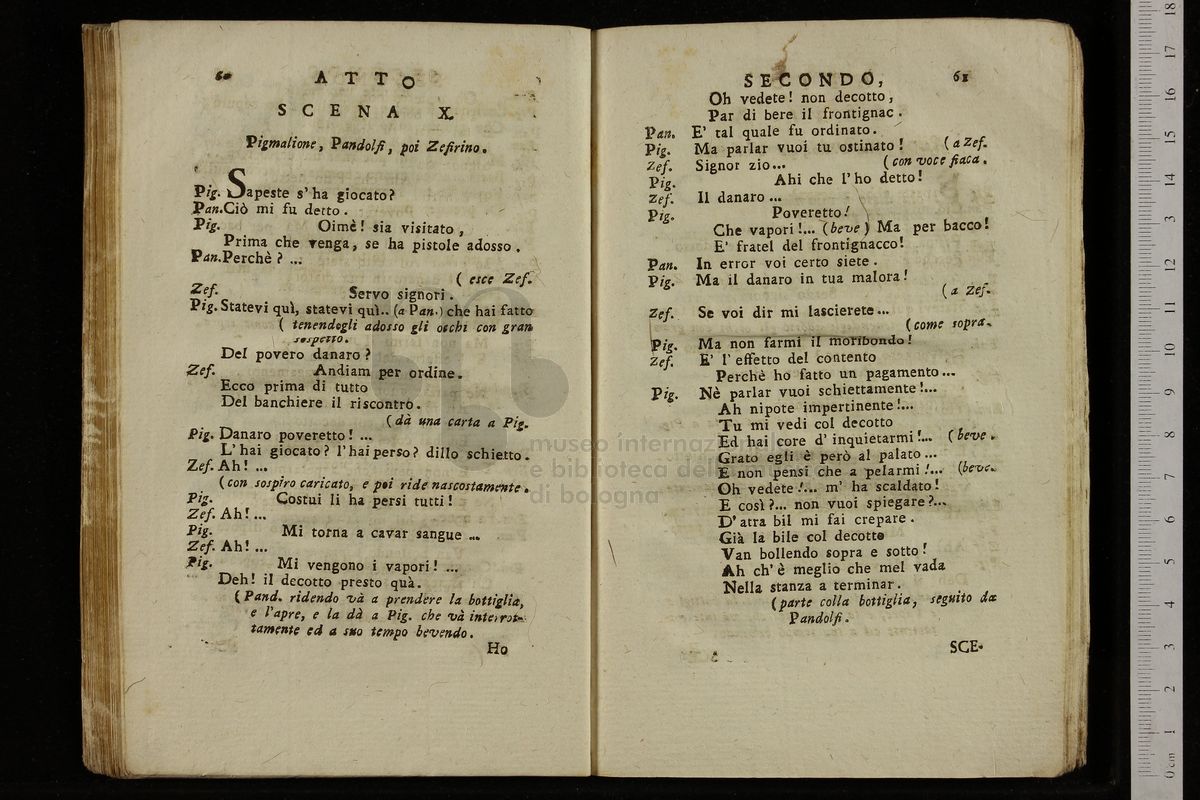 60 ATTO
SCENA X.
Pigmalione, Pandolfi, poi Zefirino.
Pig. Sapeste s'ha giocato?
Pan. Ciò mi fu detto.
Pig. Oimè! sia visitato,
Prima che venga, se ha pistole adosso.
Pan. Perchè? ...
( esce Zef.
Zef. Servo signori.
Pig. Statevi quì, statevi quì.. (a Pan.) che hai fatto
( tenendogli adosso gli occhi con gran
sospetto.
Del povero danaro?
Zef. Andiam per ordine.
Ecco prima di tutto
Del banchiere il riscontro.
(dà una carta a Pig.
Pig. Danaro poveretto! ...
L'hai giocato? l'hai perso? dillo schietto.
Zef. Ah! ...
(con sospiro caricato, e poi ride nascostamente.
Pig. Costui li ha persi tutti!
Zef. Ah! ...
Pig. Mi torna a cavar sangue ...
Zef. Ah! ...
Pig. Mi vengono i vapori! ...
Deh! il decotto presto quà.
(Pand. ridendo và a prendere la bottiglia,
e l'apre, e la dà a Pig. che và interrot-
tamente ed a suo tempo bevendo.
Ho
SECONDO, 61
Oh vedete! non decotto,
Par di bere il frontignac.
Pan. E' tal quale fu ordinato.
Pig. Ma parlar vuoi tu ostinato! (a Zef.
Zef. Signor zio... (con voce fiaca.
Pig. Ahi che l'ho detto!
Zef. Il danaro ...
Pig. Poveretto!
Che vapori!... (beve) Ma per bacco!
E' fratel del frontignacco!
Pan. In error voi certo siete.
Pig. Ma il danaro in tua malora!
(a Zef.
Zef. Se voi dir mi lascierete...
(come sopra.
Pig. Ma non farmi il moribondo!
Zef. E' l'effetto del contento
Perchè ho fatto un pagamento...
Pig. Nè parlar vuoi schiettamente!...
Ah nipote impertinente!...
Tu mi vedi col decotto
Ed hai core d'inquietarmi!... (beve.
Grato egli è però al palato...
E non pensi che a pelarmi!... (beve.
Oh vedete!... m'ha scaldato!
E così?... non vuoi spiegare?...
D'atra bil mi fai crepare.
Già la bile col decotto
Van bollendo sopra e sotto!
Ah ch'è meglio che mel vada
Nella stanza a terminar.
(parte colla bottiglia, seguito da
Pandolfi.
SCE-
museo internazional
e biblioteca della
di bologna
0 cm 1 2 3 4 5 6 7 8 9 10 11 12 13 14 15 16 17 18